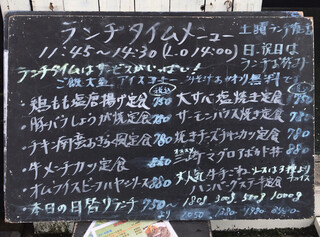 ランチタイムメニュー
11:45～14:30 (L.O 14:00)
日.祝日は
ランチお休み
ランチタイムはサービスがいっぱい!
ご飯大盛 アイスコーヒー お替わり無料で
鶏もも塩唐揚げ定食 750
豚バラしょうが焼定食 780
チキン南蛮おろし風定食 780
牛メーチカツ定食 850
オムライスビーフハヤシソース 880
本日の日替りランチ 750～
大サバ塩焼き定食 780
サーモンハラス焼き定食 780
焼きチーズチキンカツ定食 780
三崎マグロアボカド丼 880
大人気 牛手ごねソースは3種より
ハンバーグステーキ定食
180g 300g 500g 1000g
より 1050